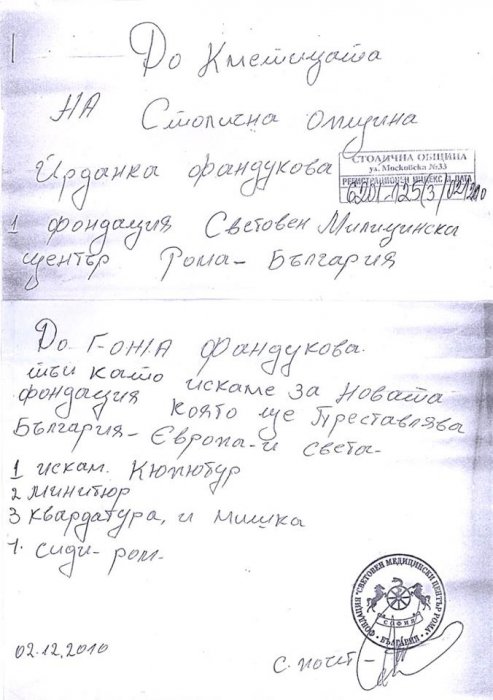 До Кметицата
на Столична опщина
Йрданка фандукова
СТОЛИЧНА ОБЩИНА
ул. Московска №33
РЕГИСТРАЦИОНЕН ИНДЕКС И ДАТА
1 фондация Световен Милицинска
център Рома - България
До Г-ожа фандукова.
тъи като искаме за Новата
фондация която ще Преставлява
България - Европа - и света -
1 искам. Кюпютур
2 минитюр
3 квардатура, и мишка
7. сиди - ром -
ФОНДАЦИЯ "СВЕТОВЕН МЕДИЦИНСКИ ЦЕНТЪР РОМА" - БЪЛГАРИЯ
СОФИЯ
02.12.2010
с. почет -